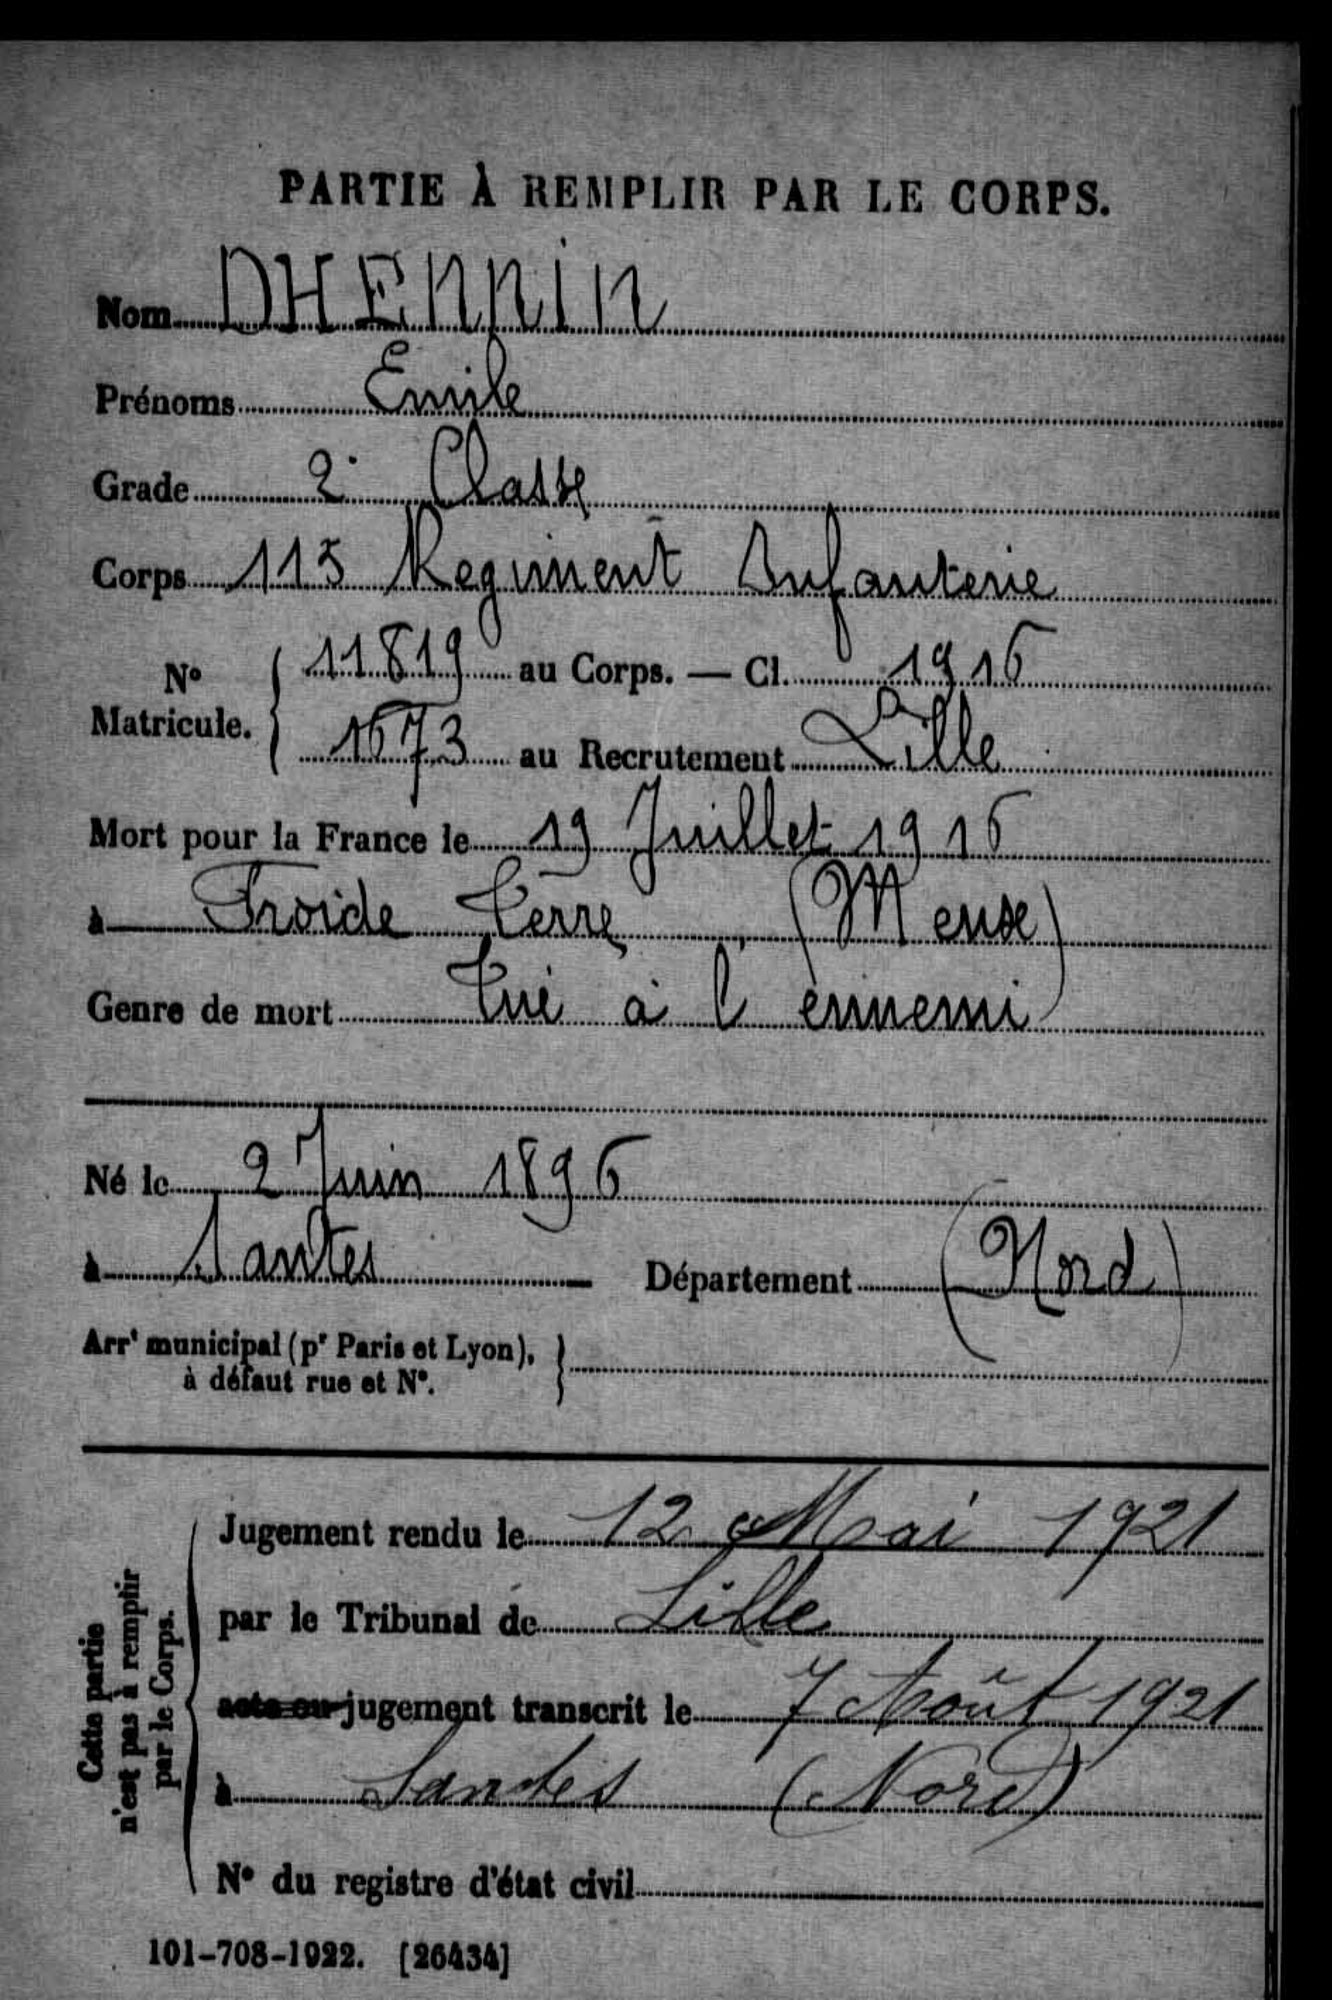 PARTIE À REMPLIR PAR LE CORPS.
Nom DHENNIN
Prénoms Emile
Grade 2e Classe
Corps 115 Regiment Infanterie
No Matricule. { 11819 au Corps. — Cl. 1916
1673 au Recrutement Lille
Mort pour la France le 19 Juillet 1916
à Froide Terre (Meuse)
Genre de mort Tué à l'ennemi
Né le 2 Juin 1896
à Santes Département (Nord)
Arrt municipal (pr Paris et Lyon), }
à défaut rue et No.
Cette partie
n'est pas à remplir
par le Corps.
Jugement rendu le 12 Mai 1921
par le Tribunal de Lille
acte ou jugement transcrit le 7 Août 1921
à Santes (Nord)
No du registre d'état civil
101-708-1922. [26434]